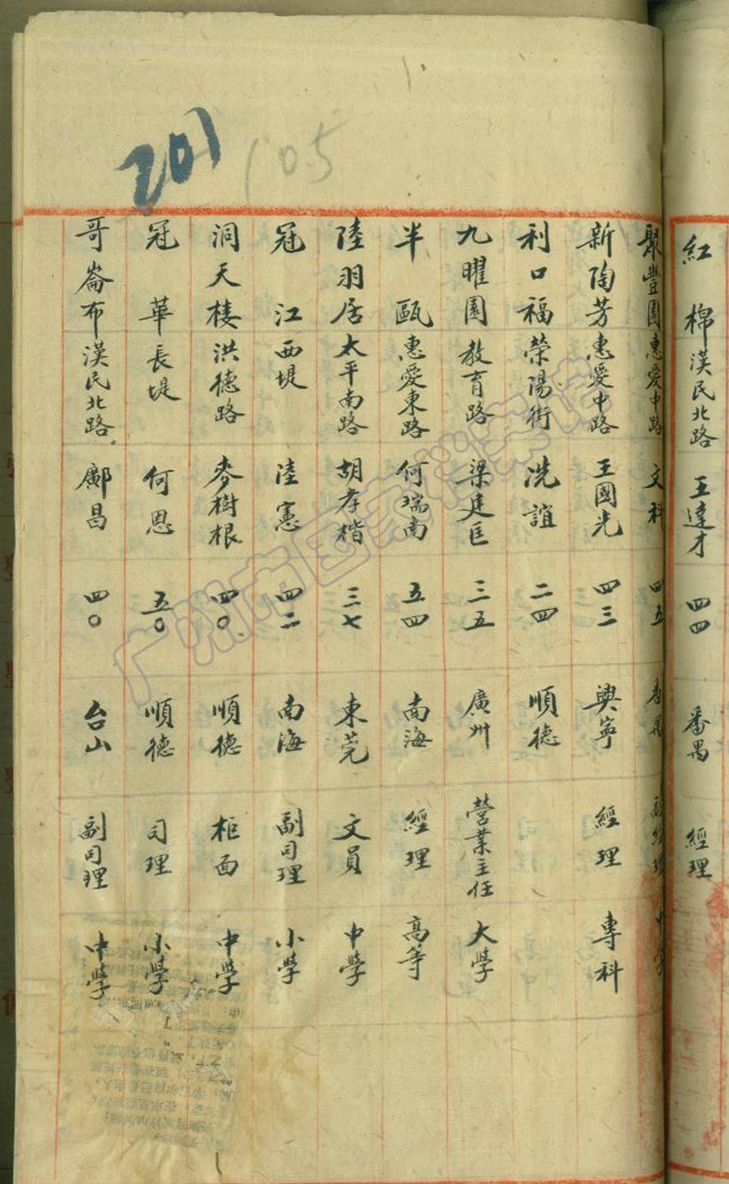 紅棉 漢民北路 王達才 四四 番禺 經理
聚豐園 惠愛中路 文科 四五 番禺 副經理 中學
新陶芳 惠愛中路 王國光 四三 興寧 經理 專科
利口福 榮陽街 冼誼 二四 順德
九曜園 教育路 梁廷匡 三五 廣州 營業主任 大學
半甌 惠愛東路 何瑞南 五四 南海 經理 高等
陸羽居 太平南路 胡孝楷 三七 東莞 文員 中學
冠江 西堤 陸憲 四二 南海 副司理 小學
洞天楼 洪德路 麥樹根 四〇 順德 柜面 中學
冠華 長堤 何恩 五〇 順德 司理 小學
哥崙布 漢民北路 鄺昌 四〇 台山 副司理 中學
201
105
广州市国家档案馆